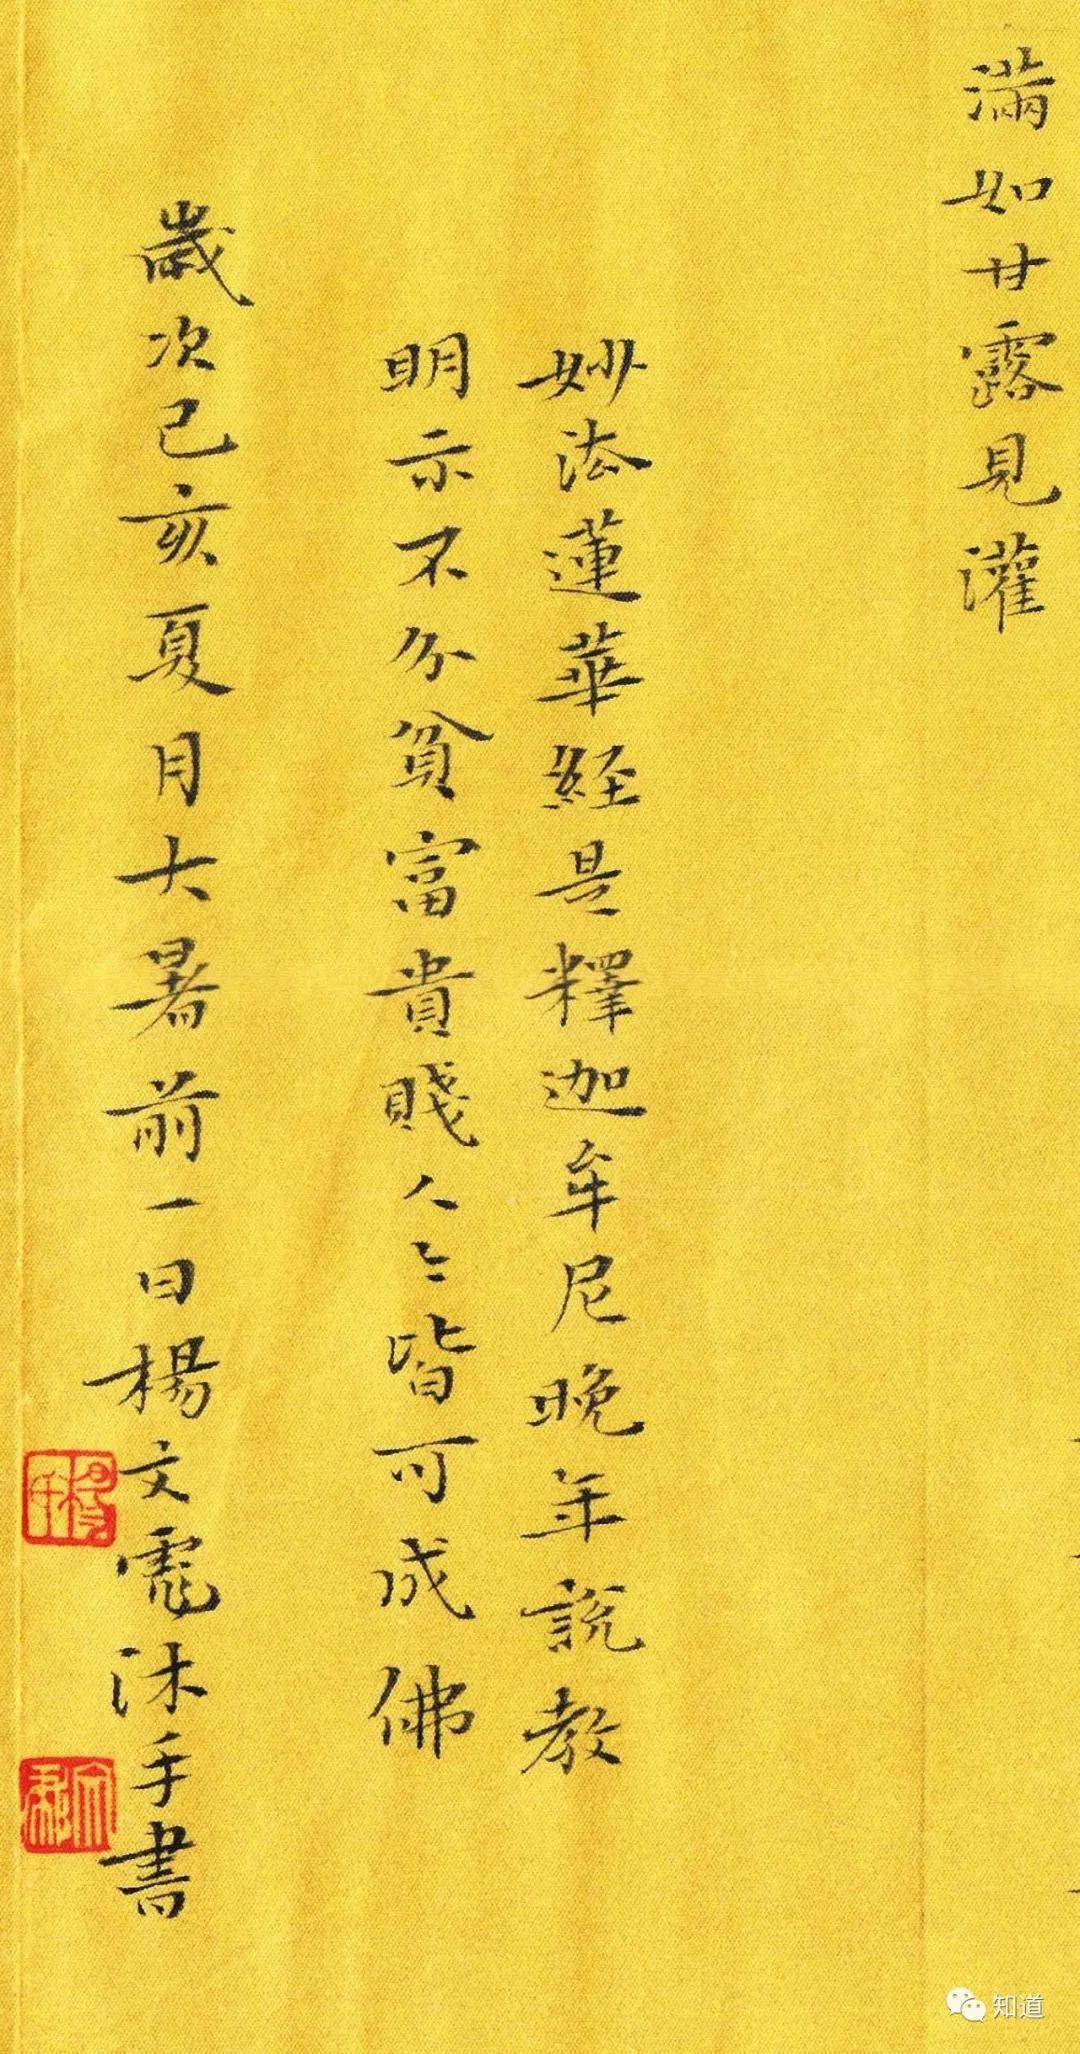 滿如甘露見灌
妙法蓮華經是釋迦牟尼晚年說教
明示不分貧富貴賤人々皆可成佛
歲次己亥夏月大暑前一日楊文虎沐手書
知道